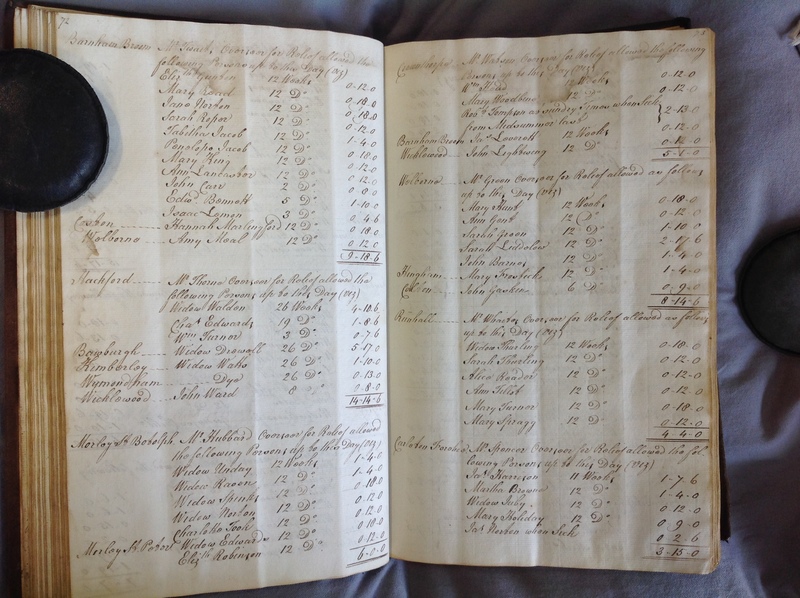 72
Barnham Broom Mr. Tisack Overseer for Relief allowed the
following Persons up to this Day (viz)
Eliz.th Gunton 12 Weeks 0-12-0
Mary 12 Do 0-18-0
Jane Norton 12 Do 0-18-0
Sarah Roper 12 Do 0-12-0
Tabitha Jacob 12 Do 1-4-0
Penelope Jacob 12 Do 0-18-0
Mary King 12 Do 0-12-0
Ann Lancaster 12 Do 0-12-0
John Carr 2 Do 0-8-0
Edwd. Bennett 5 Do 1-10-0
Isaac Lemon 3 Do 0-4-6
Coston Hannah Morlingford 12 Do 0-18-0
Welborne Amy Moal 12 Do 0-12-0
9-18-6
Hackford Mr. Thorne Overseer for Relief allowed the
following Persons up to this Day (viz)
Widow Waldon 26 Weeks 4-10-6
Chas. Edwards 19 Do 1-8-6
Wm. Turner 3 Do 0-7-6
Bawburgh Widow Drewell 26 Do 5-17-0
Kimberley Widow Wales 26 Do 1-10-0
Wymondham Dye 26 Do 0-13-0
Wicklewood John Ward 8 Do 0-8-0
14-14-6
Morley St. Botolph Mr. Hubbard Overseer for Relief allowed
the following Persons up to this Day (viz)
Widow Unday 12 Weeks 1-4-0
Widow Raven 12 Do 1-4-0
Widow Spinks 12 Do 0-18-0
Widow Norton 12 Do 0-12-0
Charlotte Took 12 Do 0-12-0
Widow Edwards 12 Do 0-18-0
Morley St. Peter Eliz.th Robinson 12 Do 0-12-0
6-0-0
Crownthorpe Mr. Overseer for Relief allowed the following
Persons up to this Day (viz)
Wm. Hind 12 Weeks 0-12-0
Mary Woodbine 12 Do 0-12-0
Robt. Tompson at sundry Times when Sick
from Midsummer last 2-13-0
Barnham Broom Jas. Loverett 12 Weeks 0-12-0
Wicklewood John Lightwing 12 Do 0-12-0
5-1-0
Welborne Mr. Green Overseer for Relief allowed as follows
up to this Day (viz)
Mary Hunt 12 Weeks 0-18-0
Ann Gent 12 Do 0-12-0
Sarah Green 12 Do 1-10-0
Sarah Luddelow 12 Do 2-17-6
John Barnes 12 Do 1-4-0
Hingham Mary Frostick 12 Do 1-4-0
John Gaskin 6 Do 0-9-0
8-14-6
Runhall Mr. Overseer for Relief allowed as follows
up to this Day (viz)
Widow Thurling 12 Weeks 0-18-0
Sarah Thurling 12 Do 0-12-0
Alice Reader 12 Do 0-12-0
Ann Tillet 12 Do 0-12-0
Mary Turner 12 Do 0-18-0
Mary Spragg 12 Do 0-12-0
4-4-0
Carleton Forehoe Mr. Spencer Overseer for Relief allowed the fol
lowing Persons up to this Day (viz)
Jas. Harrison 11 Weeks 1-7-6
Martha Browne 12 Do 1-4-0
Widow Juby 12 Do 0-12-0
Mary Holiday 12 Do 0-9-0
Jas. when Sick 0-2-6
3-15-0